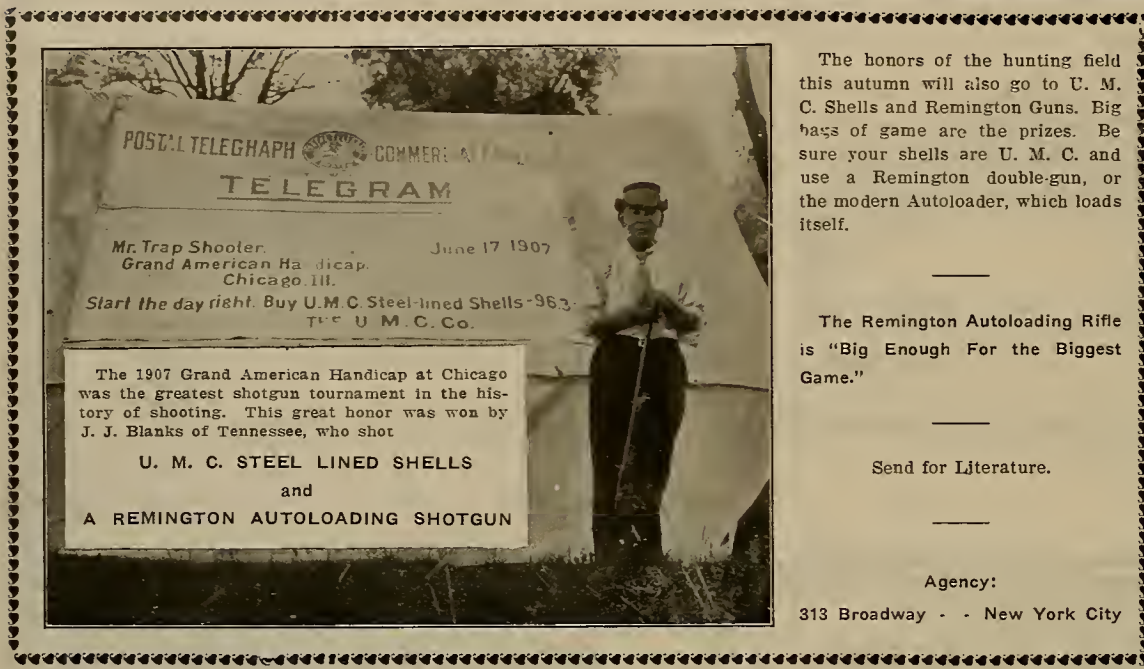 POSTAL TELEGRAPH COMMERCIAL
TELEGRAM
Mr. Trap Shooter. June 17 1907
Grand American Ha dicap.
Chicago. Ill.
Start the day right. Buy U.M.C. Steel-lined Shells-963.
THE U.M.C. Co.
The 1907 Grand American Handicap at Chicago
was the greatest shotgun tournament in the his-
tory of shooting. This great honor was won by
J. J. Blanks of Tennessee, who shot
U. M. C. STEEL LINED SHELLS
and
A REMINGTON AUTOLOADING SHOTGUN
The honors of the hunting field
this autumn will also go to U. M.
C. Shells and Remington Guns. Big
bags of game are the prizes. Be
sure your shells are U. M. C. and
use a Remington double-gun, or
the modern Autoloader, which loads
itself.
The Remington Autoloading Rifle
is "Big Enough For the Biggest
Game."
Send for Literature.
Agency:
313 Broadway - - New York City